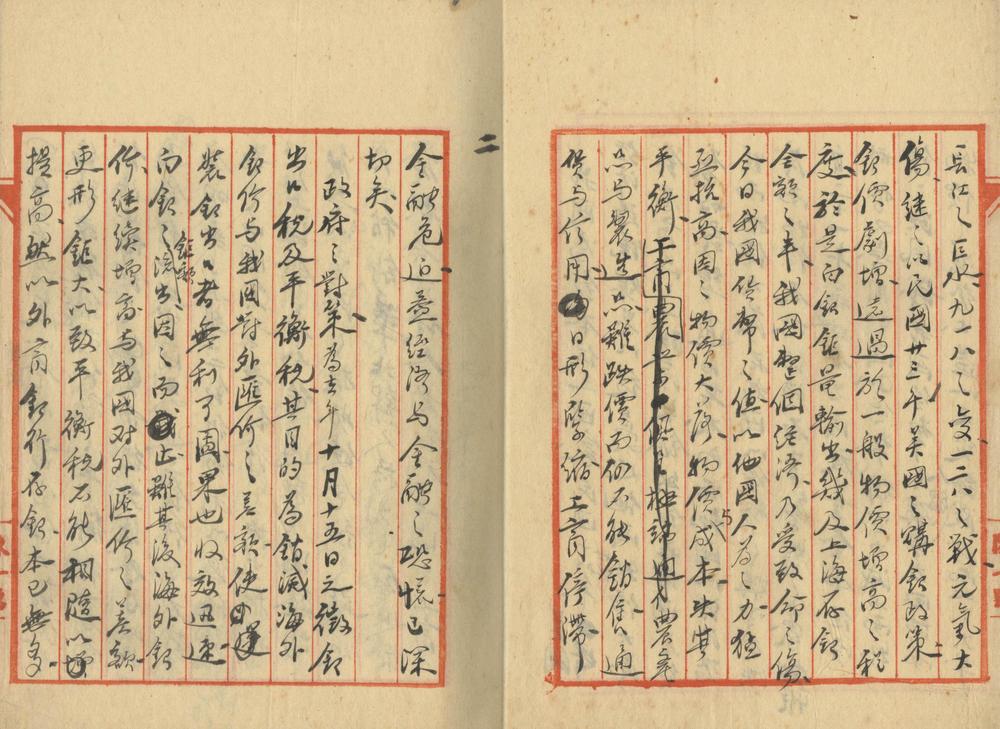 長江之巨災九一八之變一二八之戰元氣大
傷繼之以民國廿三年美國之購銀政策
銀價劇增遠過於一般物價增高之程
度於是白銀鉅量輸出幾及上海存銀
全額之半我國整個經濟乃受致命之傷
今日我國貨幣之值以他國人為之力猛
烈抗高因之物價大落物價与成本失其
平衡農產
品与製造品雖跌價而仍不能銷售通
貨与信用日形緊縮工商停滯
二
金融危迫蓋經濟与金融之恐慌已深
切矣
政府之對策為去年十月十五日之徵銀
出口稅及平衡稅其目的為銷滅海外
銀价与我國對外匯价之差額使運
裝銀出口者無利可圖果也收效迅速
白銀鉅額之流出因之而止雖其後海外銀
价繼續增高与我國对外匯价之差額
更形鉅大以致平衡稅不能相隨以增
提高然以外商銀行存銀本已無多